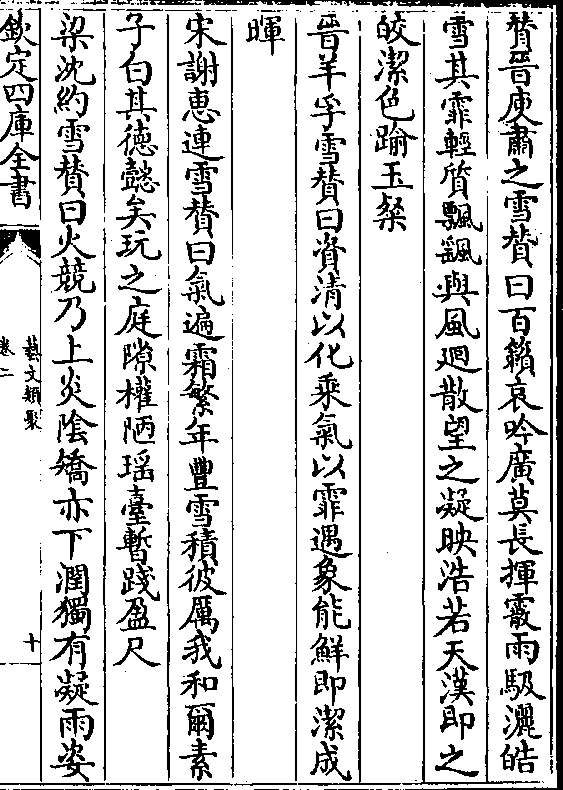 賛晉庾肅之雪賛曰百籟哀吟廣莫長揮霰雨駁灑皓
雪其霏輕質飄颻與風迴散望之凝映浩若天漢即之
皎潔色踰玉粲
晉羊孚雪賛曰資清以化乘氣以霏遇象能鮮即潔成
暉
宋謝惠連雪賛曰氣遍霜繁年豐雪積彼厲我和爾素
子白其德懿矣玩之庭隙權陋瑶臺暫踐盈尺
梁沈約雪賛曰火競乃上炎陰矯亦下潤獨有凝雨姿
欽定四庫全書
藝文類聚
卷二
十